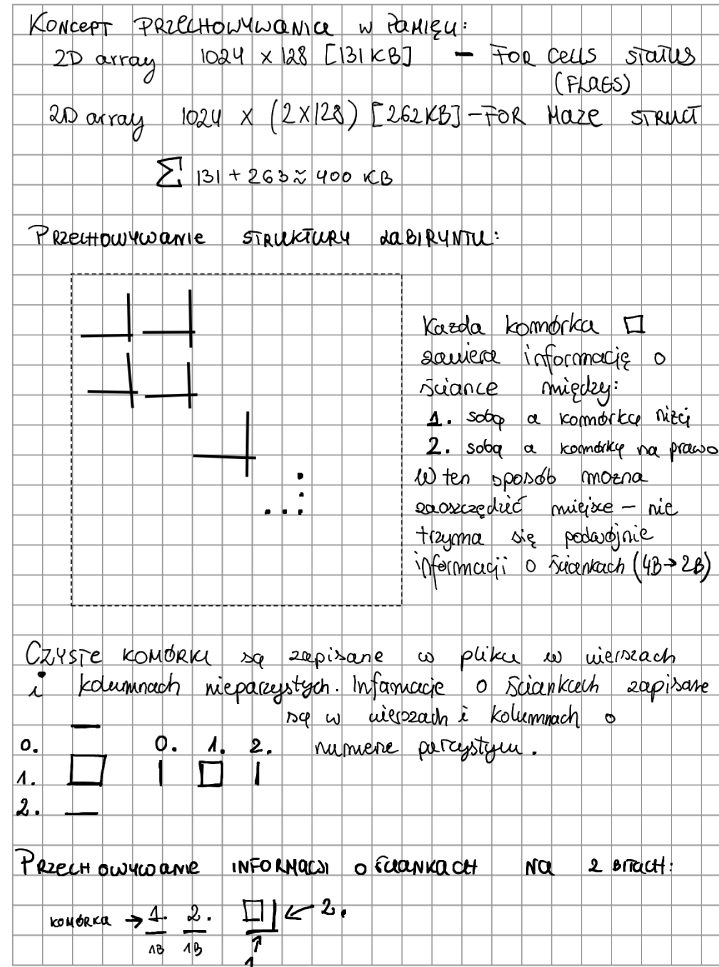 KONCEPT PRZECHOWYWANIA W PAMIĘCI:
2D array 1024 x 128 [131 KB] — FOR CELLS STATUS
(FLAGS)
2D array 1024 X (2X128) [262KB] - FOR MAZE STRUCT
∑ 131 + 263 ≈ 400 KB
PRZECHOWYWANIE STRUKTURY LABIRYNTU:
Każda komórka □
zawiera informację o
ściance między:
1. sobą a komórką niżej
2. sobą a komórką na prawo
W ten sposób można
zaoszczędzić miejsce - nie
trzyma się podwójnie
informacji o ściankach (4B→2B)
CZYSTE KOMÓRKI są zapisane w pliku w wierszach
i kolumnach nieparzystych. Informacje o ściankach zapisane
są w wierszach i kolumnach o
0. 0. 1. 2. numerze parzystym.
1.
2.
PRZECHOWYWANIE INFORMACJI O ŚCIANKACH NA 2 BITACH:
KOMÓRKA → 1. 2. ← 2.
1B 1B
1